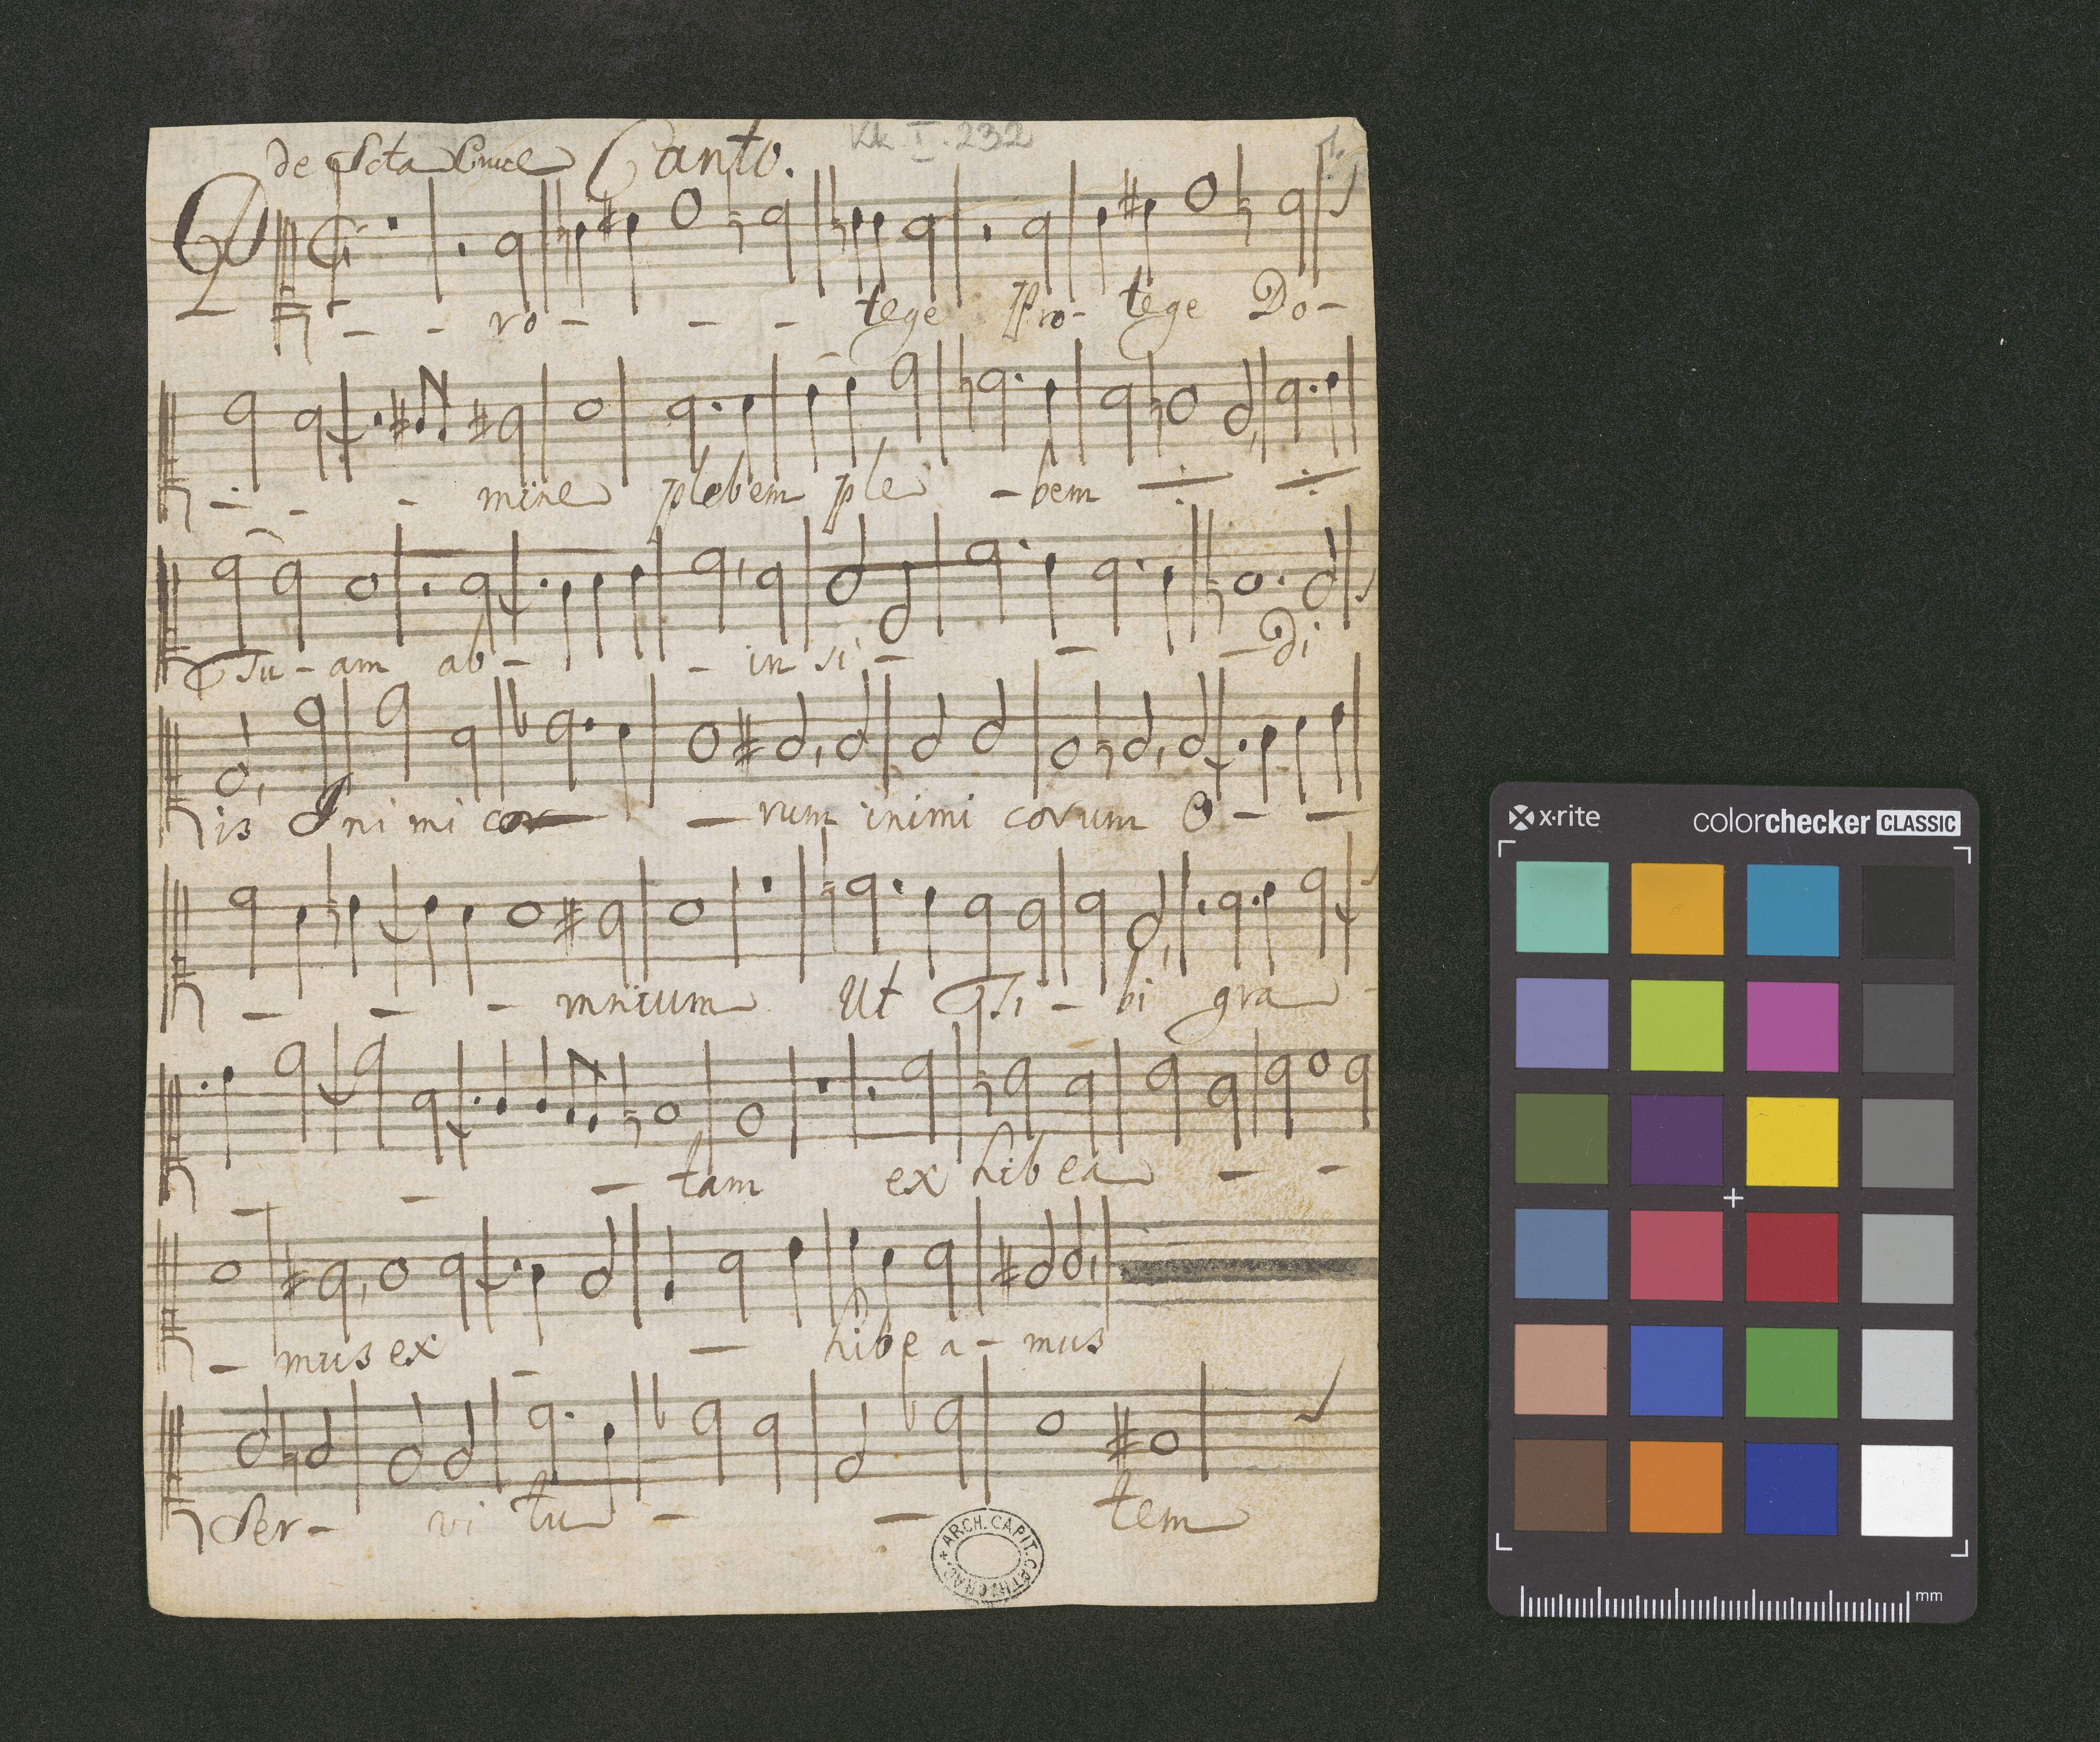 de Scta Cruce Canto. Kk I. 232 1.
P - - ro - - - tege Pro- tege Do-
- - - mine plebem ple - bem ⁒ ⁒
Tu - am ab - - in si - - - Di
is Ini mi cor - rum inimi corum O - -
- - - mnium Ut Ti - bi gra -
- - - tam ex hib ea - -
- mus ex - - hibe a - mus
Ser - vi tu - - tem
ARCH. CAPIT. CATH. CRAC.
x-rite colorchecker CLASSIC
mm